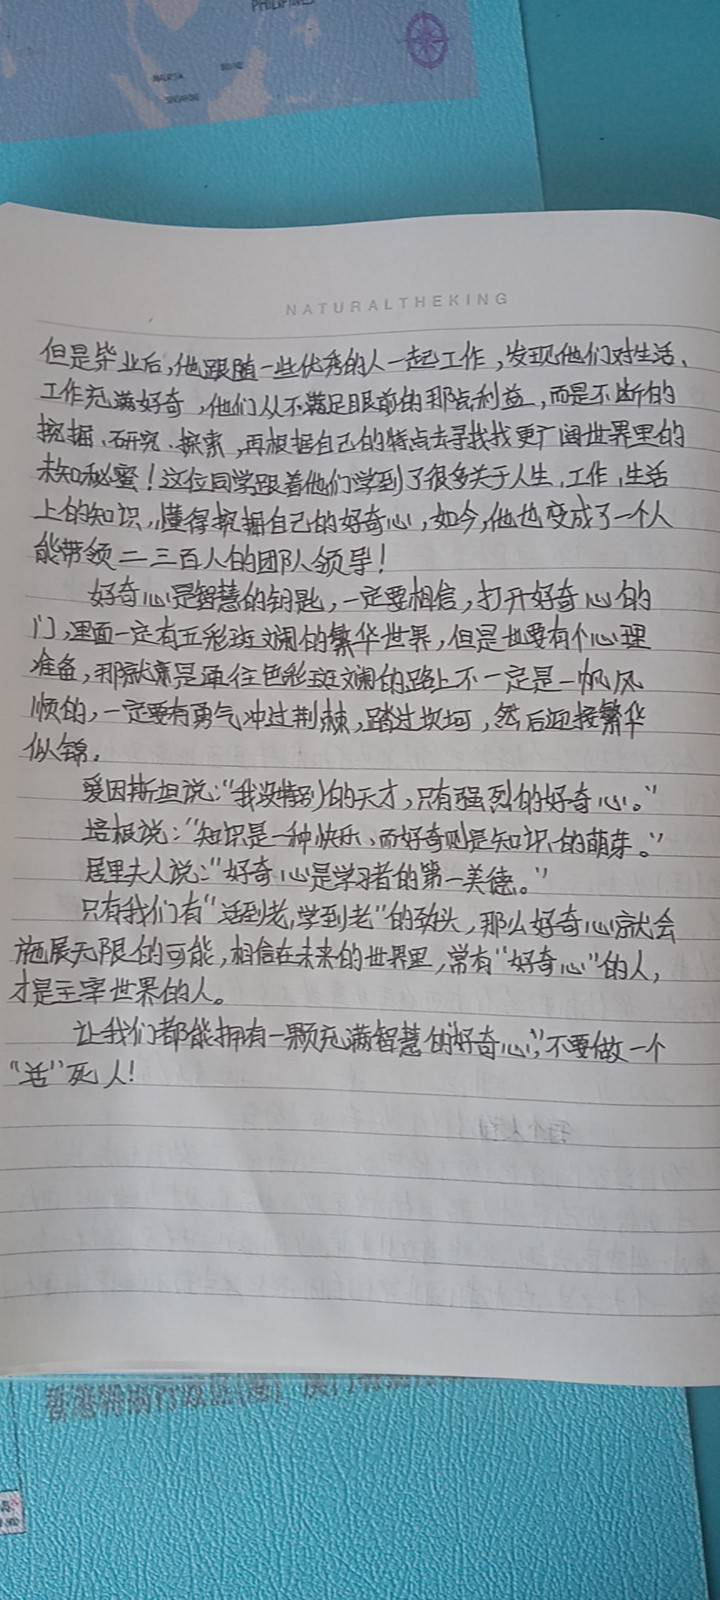 PHILIPPINES
MALAYSIA
SINGAPORE
NATURALTHEKING
但是毕业后,他跟随一些优秀的人一起工作,发现他们对生活、
工作充满好奇,他们从不满足眼前的那点利益,而是不断的
挖掘、研究、探索,再根据自己的特点去寻找找更广阔世界里的
未知秘蜜!这位同学跟着他们学到了很多关于人生、工作、生活
上的知识,懂得挖掘自己的好奇心,如今,他也变成了一个人
能带领二三百人的团队领导!
好奇心是智慧的钥匙,一定要相信,打开好奇心的
门,里面一定有五彩斑斓的繁华世界,但是也要有个心理
准备,那就是通往色彩斑斓的路上不一定是一帆风
顺的,一定要有勇气冲过荆棘,踏过坎坷,然后迎接繁华
似锦。
爱因斯坦说:“我没特别的天才,只有强烈的好奇心。”
培根说:“知识是一种快乐、而好奇则是知识的萌芽。”
居里夫人说:“好奇心是学习者的第一美德。”
只有我们有“活到老,学到老”的劲头,那么好奇心就会
施展无限的可能,相信在未来的世界里,常有“好奇心”的人,
才是主宰世界的人。
让我们都能拥有一颗充满智慧的“好奇心”,不要做一个
“活”死人!